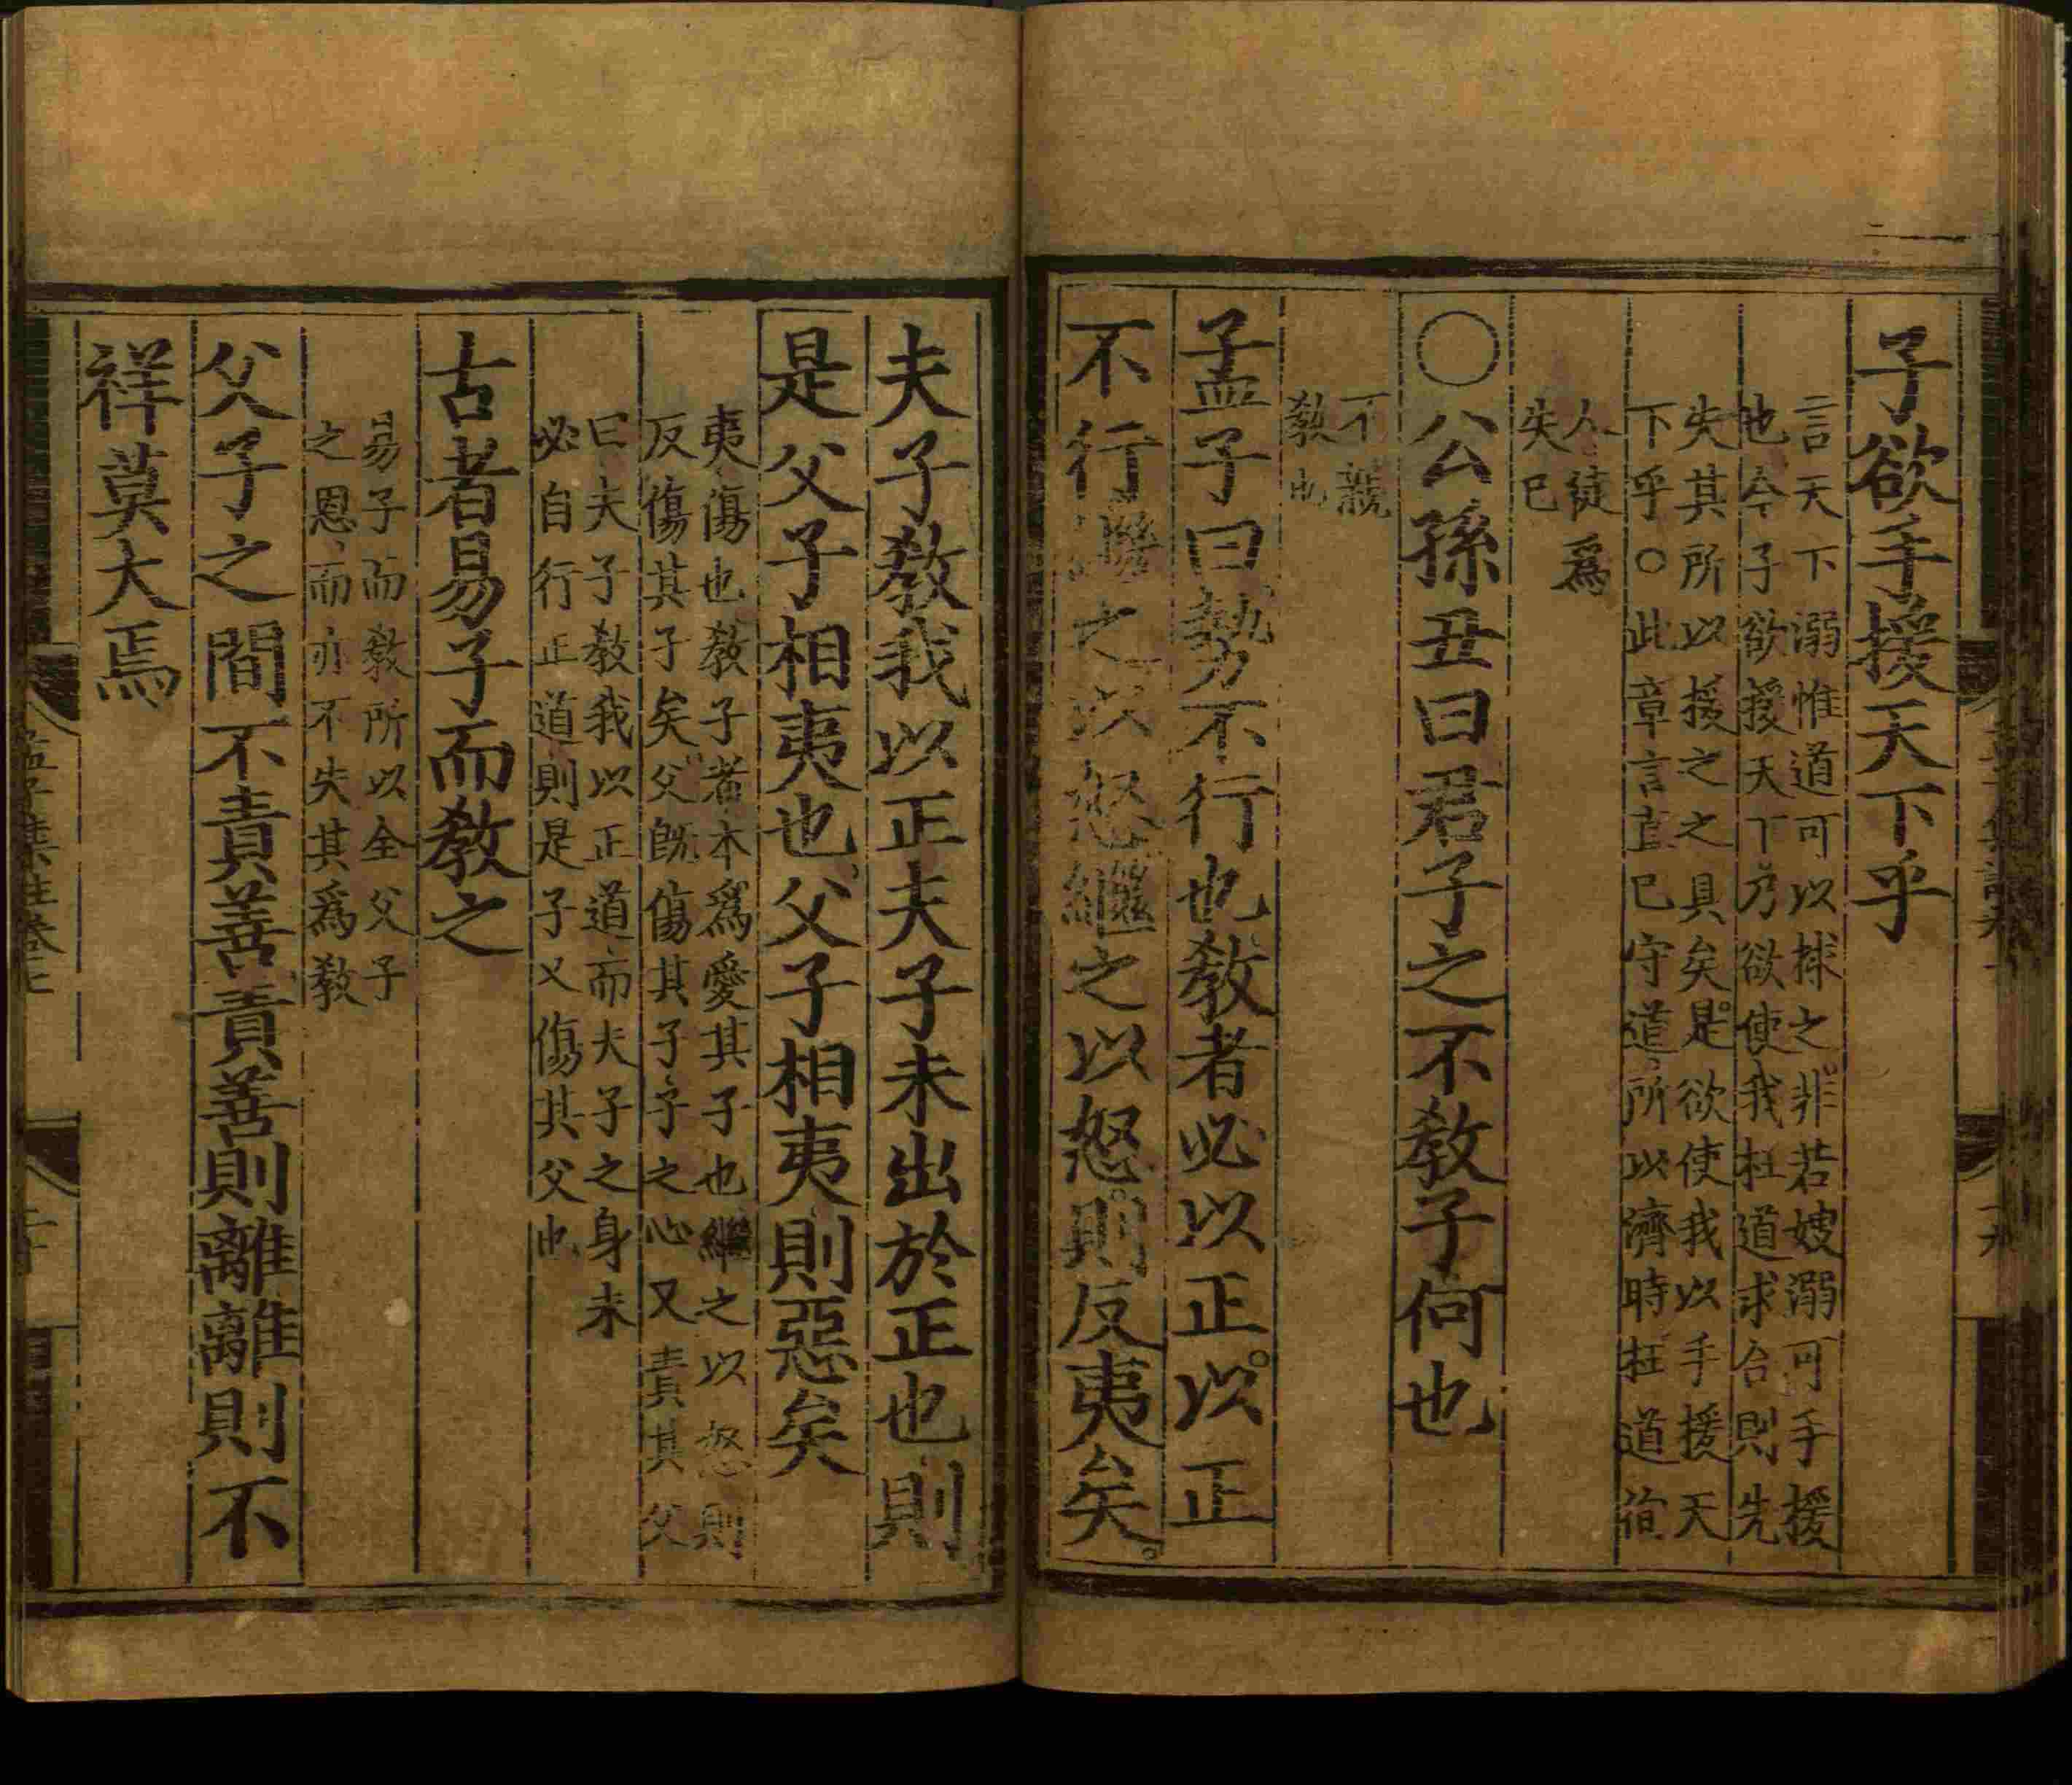 子欲手援天下乎
言天下溺惟道可以捄之非若嫂溺可手援
也今子欲援天下乃欲使我枉道求合則先
失其所以援之之具矣是欲使我以手援天
下乎○此章言直已守道所以濟時枉道徇
人徒爲
失已
○公孫丑曰君子之不敎子何也
不親
敎也
孟子曰勢不行也敎者必以正以正
不行繼之以怒繼之以怒則反夷矣
夫子敎我以正夫子未出於正也則
是父子相夷也父子相夷則惡矣
夷傷也敎子者本爲愛其子也繼之以怒則
反傷其子矣父旣傷其子子之心又責其父
曰夫子敎我以正道而夫子之身未
必自行正道則是子又傷其父也
古者易子而敎之
易子而敎所以全父子
之恩而亦不失其爲敎
父子之間不責善責善則離離則不
祥莫大焉
孟子集註卷七
二十